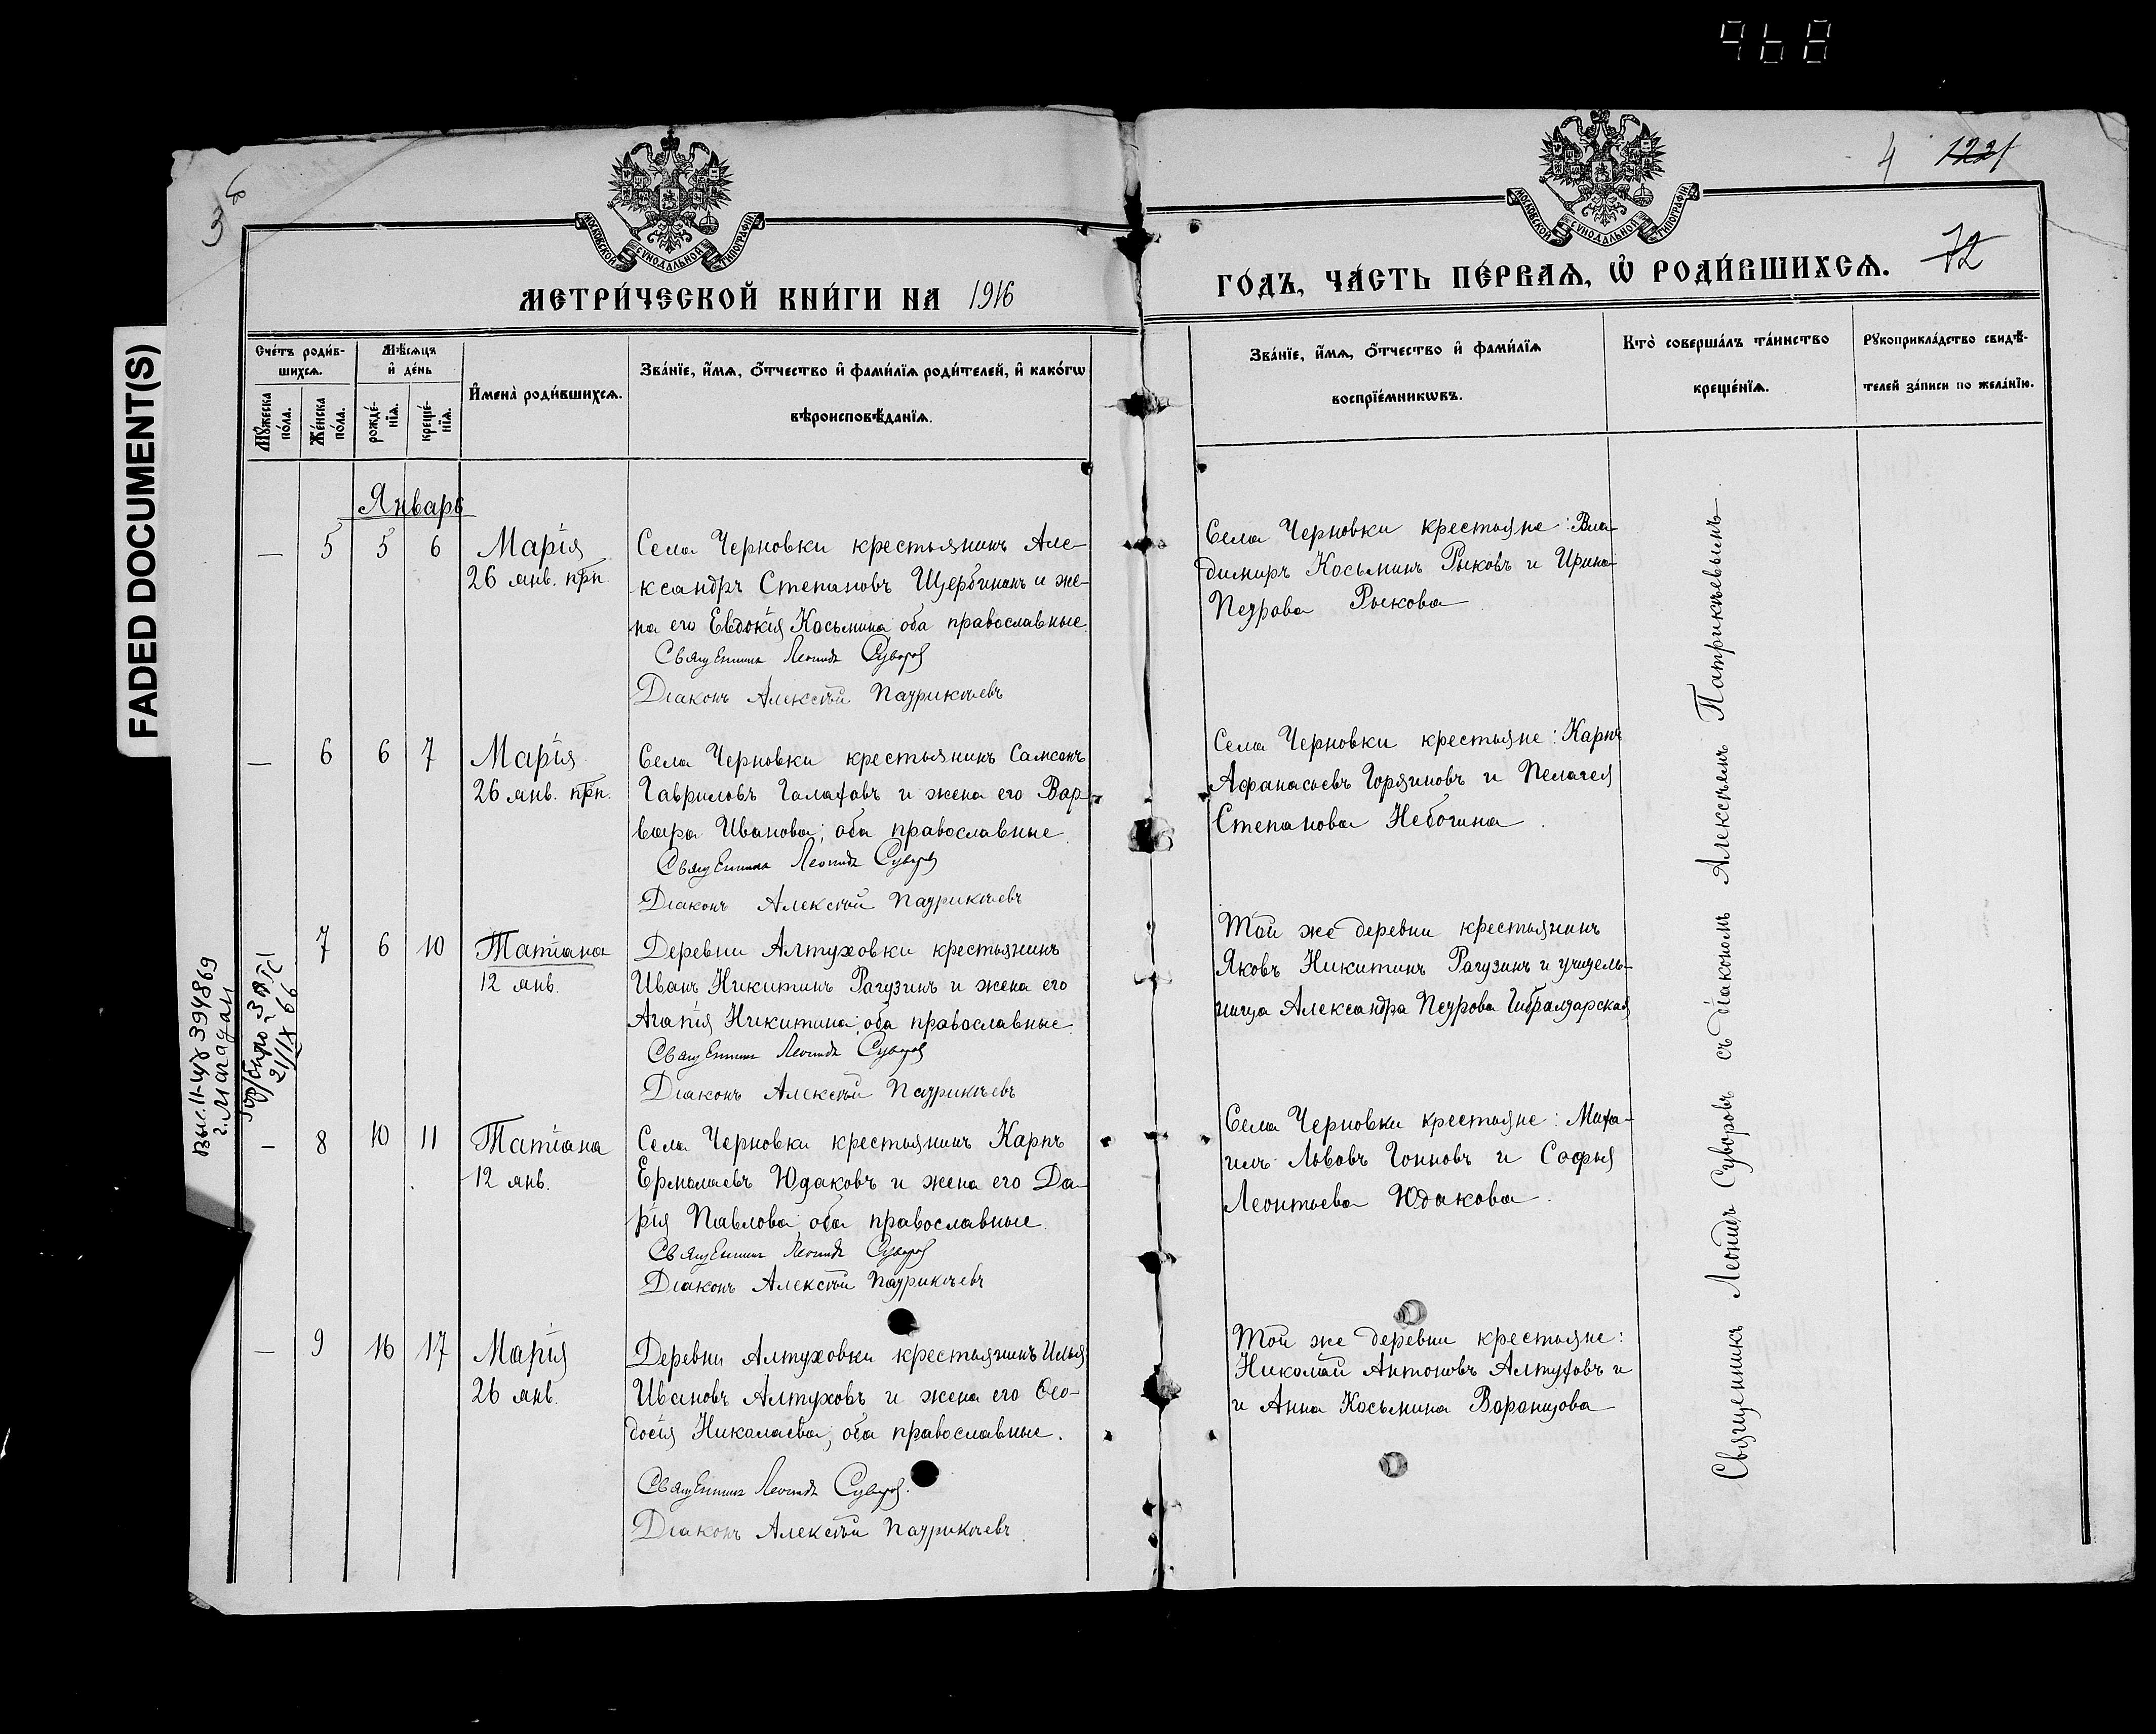 968
FADED DOCUMENT(S)
МОСКОВСКОЙ СУНОДАЛЬНОЙ ТИПОГРАФІИ
МОСКОВСКОЙ СУНОДАЛЬНОЙ ТИПОГРАФІИ
4 1221
3
72
МЕТРИ́ЧЕСКОЙ КНИ́ГИ НА 1916
ГО́ДЪ, ЧА́СТЬ ПЕ́РВАѦ, Ѿ РОДИ́ВШИХСѦ.
Сче́тъ роди́в-
шихсѧ.
Мꙋ́жеска по́ла.
Же́нска по́ла.
Мѣ́сѧцъ
и҆ де́нь
рожде́-
нїѧ.
креще́-
нїѧ.
И҆мена̀ роди́вшихсѧ.
Зва́нїе, и҆́мѧ, ѻ҆́тчество и҆ фами́лїѧ роди́телей, и҆ како́гѡ
вѣроисповѣ́данїѧ.
Зва́нїе, и҆́мѧ, ѻ҆́тчество и҆ фами́лїѧ
воспрїе́мникѡвъ.
Кто̀ соверша́лъ та́инство
креще́нїѧ.
Рꙋкоприкла́дство свидѣ́-
телей за́писи по жела́нїю.
Январь
— 5 5 6 Марія
26 янв. прп.
Села Черновки крестьянинъ Але-
ксандръ Степановъ Щербининъ и же-
на его Евдокія Косьмина оба православные
Священникъ Леонидъ Суворовъ
Діаконъ Алексѣй Патрикѣевъ
Села Черновки крестьяне: Вла-
димиръ Косьминъ Рыковъ и Ирина
Петрова Рыкова
— 6 6 7 Марія
26 янв. прп.
Села Черновки крестьянинъ Самсонъ
Гавриловъ Галаховъ и жена его Вар-
вара Иванова; оба православные.
Священникъ Леонидъ Суворовъ
Діаконъ Алексѣй Патрикѣевъ
Села Черновки крестьяне: Карпъ
Афанасьевъ Горяиновъ и Пелагея
Степанова Небогина
7 6 10 Татіана
12 янв.
Деревни Алтуховки крестьянинъ
Иванъ Никитинъ Рагузинъ и жена его
Агапія Никитина; оба православные.
Священникъ Леонидъ Суворовъ
Діаконъ Алексѣй Патрикѣевъ
Той же деревни крестьянинъ
Яковъ Никитинъ Рагузинъ и учитель-
ница Александра Петрова Гибралтарская
выс. II-щу 394869
г. Магадан
21/IX 66
— 8 10 11 Татіана
12 янв.
Села Черновки крестьянинъ Карпъ
Ермолаевъ Юдаковъ и жена его Да-
рія Павлова; оба православные.
Священникъ Леонидъ Суворовъ
Діаконъ Алексѣй Патрикѣевъ
Села Черновки крестьяне: Миха-
илъ Львовъ Гонновъ и Софья
Леонтьева Юдакова.
— 9 16 17 Марія
26 янв.
Деревни Алтуховки крестьянинъ Илья
Ивановъ Алтуховъ и жена его Ѳео-
досія Николаева; оба православные.
Священникъ Леонидъ Суворовъ.
Діаконъ Алексѣй Патрикѣевъ.
Той же деревни крестьяне:
Николай Антоновъ Алтуховъ и
и Анна Косьмина Воронцова
Священникъ Леонидъ Суворовъ съ діакономъ Алексѣемъ Патрикѣевымъ.